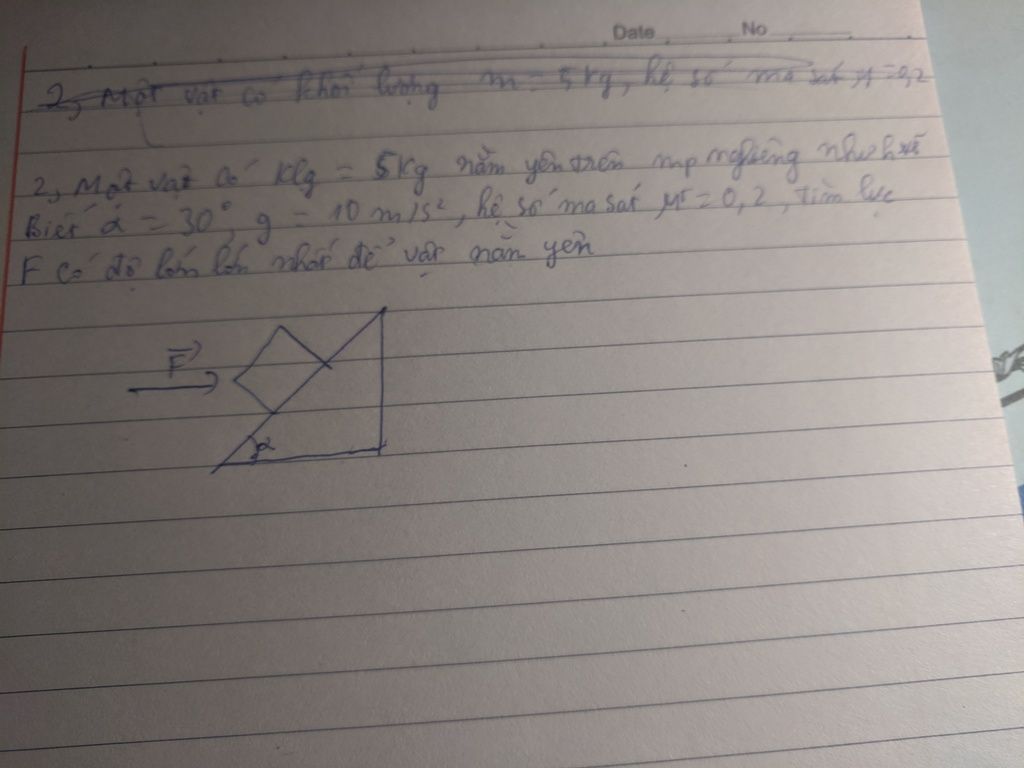 Date No
2, Một vật có khối lượng m = 5 kg, hệ số ma sát μ = 0,2
2, Một vật có klg = 5kg nằm yên trên mp nghiêng như h vẽ
Biết α = 30°, g = 10 m/s², hệ số ma sát μ = 0,2, tìm lực
F có độ lớn lớn nhất để vật nằm yên
F
α